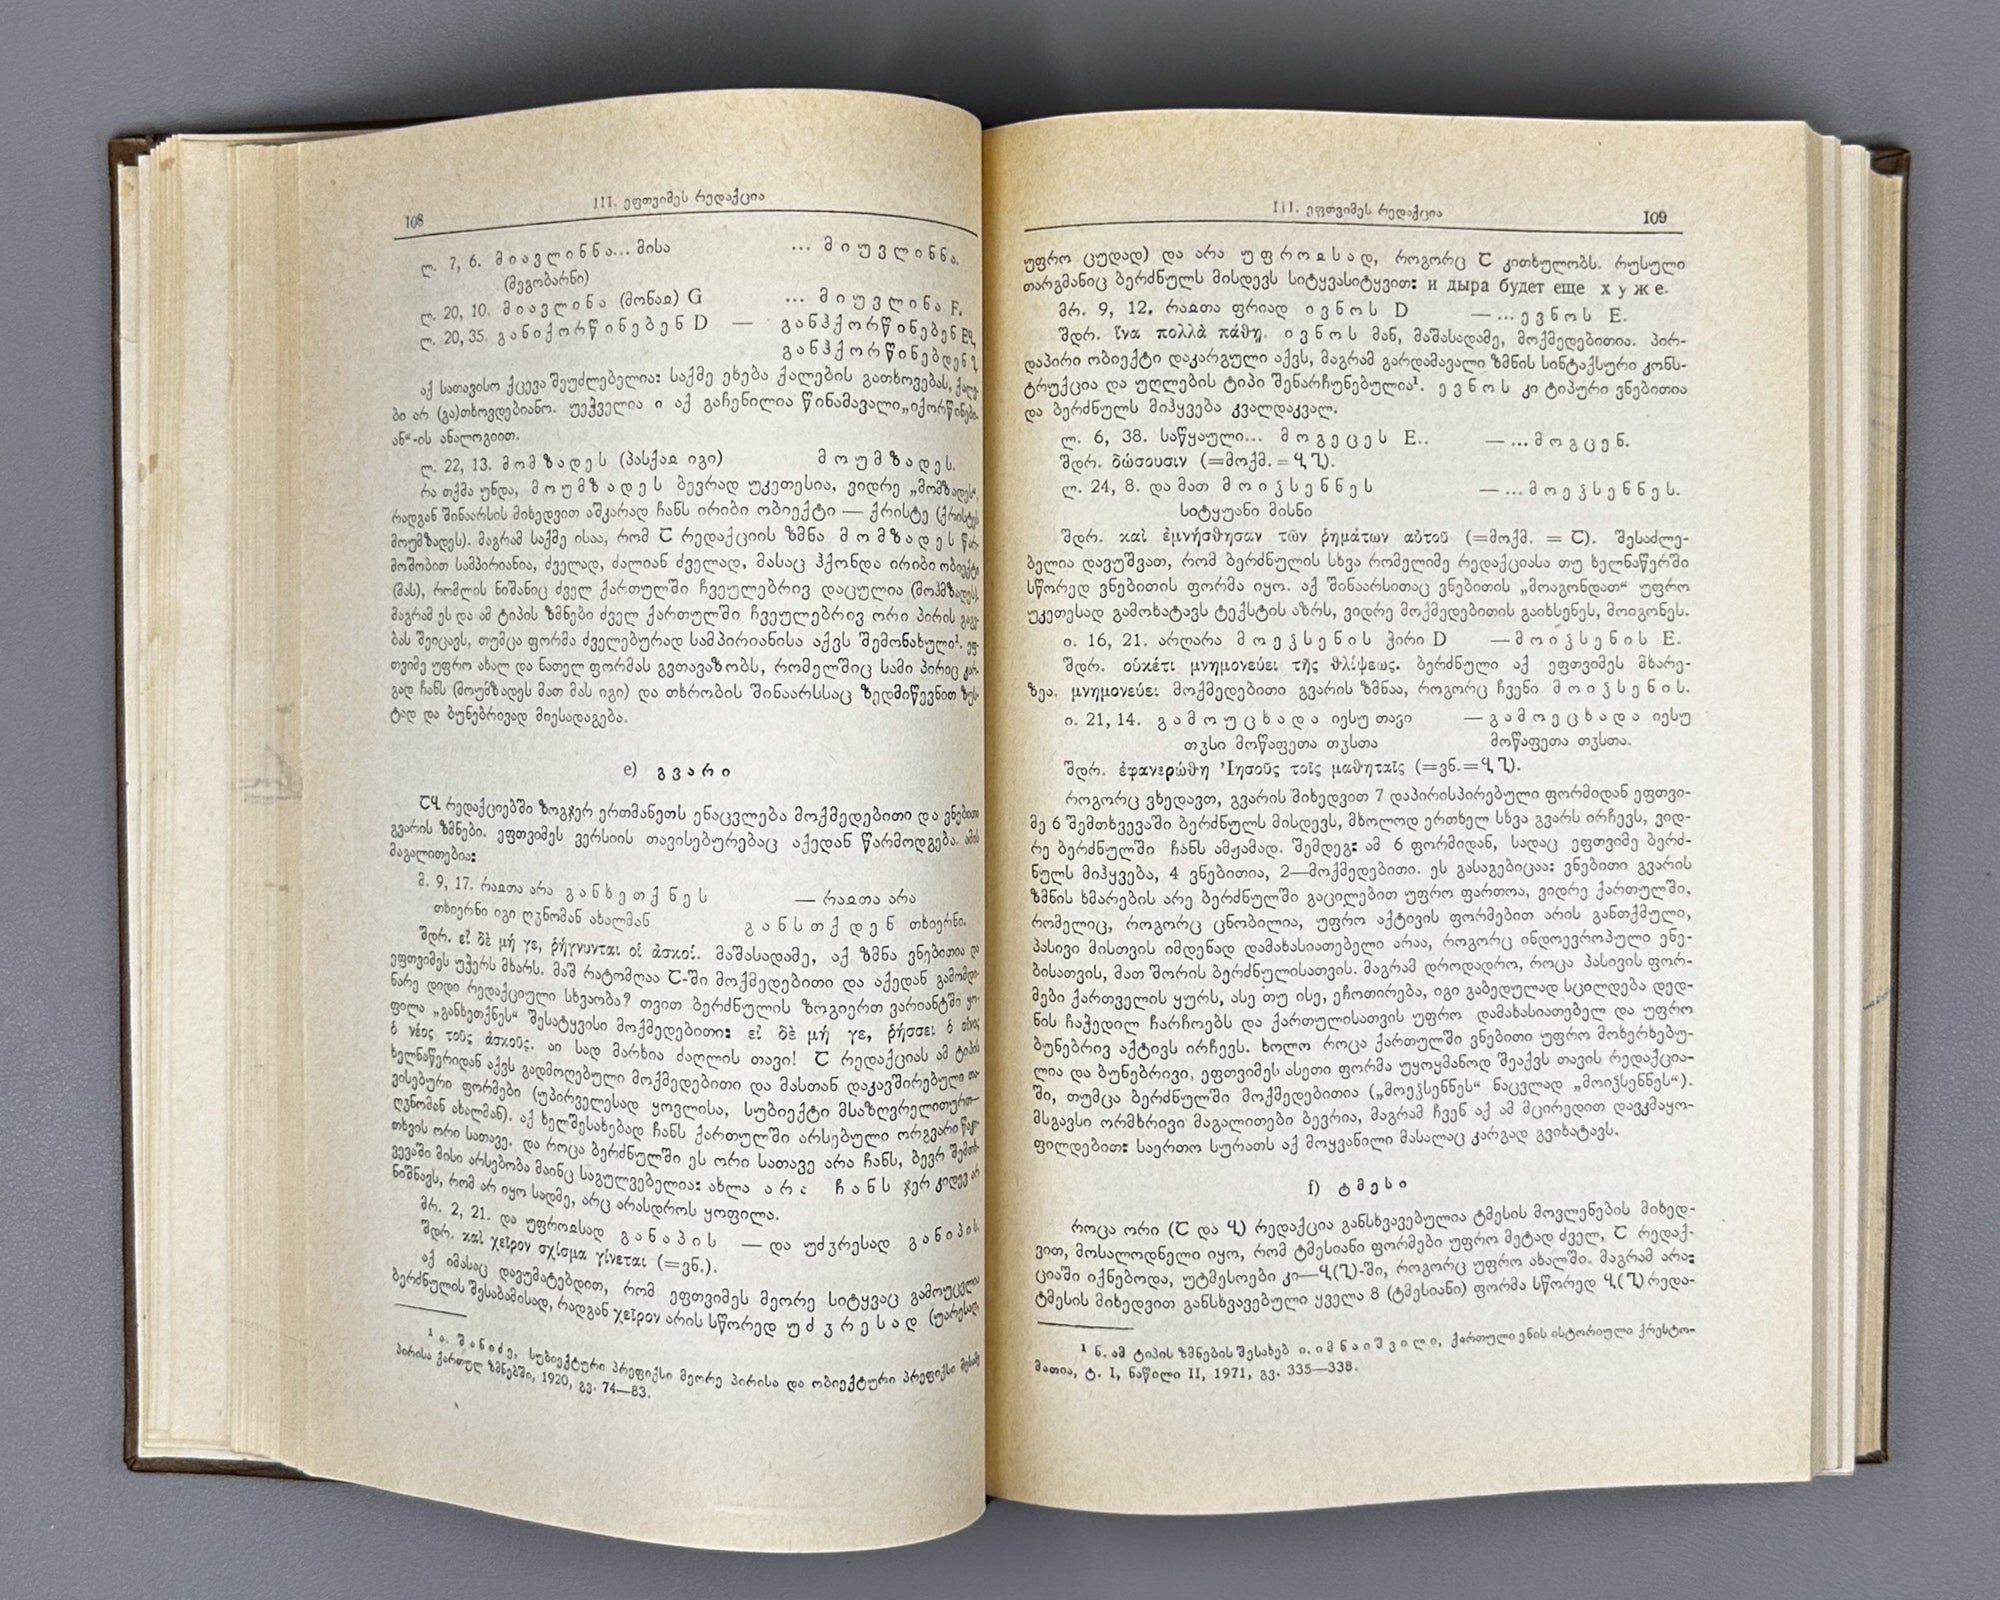 108
III. ეფთვიმეს რედაქცია
ლ. 7, 6. მიავლინნა... მისა ... მიუვლინნა.
(მეგობარნი)
ლ. 20, 10. მიავლინა (მონაჲ) G ... მიუვლინა F.
ლ. 20, 35. განიქორწინებენ D — განჰქორწინებენ EႡ,
განჰქორწინებდენ
აქ სათავისო ქცევა შეუძლებელია: საქმე ეხება ქალების გათხოვებას, ქალე-
ბი არ (გა)თხოვდებიანო. უეჭველია ი აქ გაჩენილია წინამავალი „იქორწინები-
ან“-ის ანალოგიით.
ლ. 22, 13. მომზადეს (პასქაჲ იგი) მოუმზადეს.
რა თქმა უნდა, მოუმზადეს ბევრად უკეთესია, ვიდრე „მომზადეს“,
რადგან შინაარსის მიხედვით აშკარად ჩანს ირიბი ობიექტი — ქრისტე (ქრისტეს
მოუმზადეს). მაგრამ საქმე ისაა, რომ Ⴀ რედაქციის ზმნა მომზადეს წარ-
მოშობით სამპირიანია, ძველად, ძალიან ძველად, მასაც ჰქონდა ირიბი ობიექტი
(მას), რომლის ნიშანიც ძველ ქართულში ჩვეულებრივ დაცულია (მოჰმზადეს).
მაგრამ ეს და ამ ტიპის ზმნები ძველ ქართულში ჩვეულებრივ ორი პირის გაგე-
ბას შეიცავს, თუმცა ფორმა ძველებურად სამპირიანისა აქვს შემონახული¹. ეფ-
თვიმე უფრო ახალ და ნათელ ფორმას გვთავაზობს, რომელშიც სამი პირიც კარ-
გად ჩანს (მოუმზადეს მათ მას იგი) და თხრობის შინაარსსაც ზედმიწევნით ზუს-
ტად და ბუნებრივად მიესადაგება.
e) გვარი
რედაქციებში ზოგჯერ ერთმანეთს ენაცვლება მოქმედებითი და ვნებითი
გვარის ზმნები. ეფთვიმეს ვერსიის თავისებურებაც აქედან წარმოდგება. ამის
მაგალითებია:
მ. 9, 17. რაჲთა არა განხეთქნეს — რაჲთა არა
თხიერნი იგი ღჳნომან ახალმან განსთქდენ თხიერნი.
შდრ. εἰ δὲ μή γε, ῥήγνυνται οἱ ἀσκοί. მაშასადამე, აქ ზმნა ვნებითია და
ეფთვიმეს უჭერს მხარს. მაშ რატომღაა Ⴀ-ში მოქმედებითი და აქედან გამომდი-
ნარე დიდი რედაქციული სხვაობა? თვით ბერძნულის ზოგიერთ ვარიანტში ყო-
ფილა „განხეთქნეს“ შესატყვისი მოქმედებითი: εἰ δὲ μή γε, ῥήσσει ὁ οἶνος
ὁ νέος τοὺς ἀσκούς. აი სად მარხია ძაღლის თავი! Ⴀ რედაქციას ამ ტიპის
ხელნაწერიდან აქვს გადმოღებული მოქმედებითი და მასთან დაკავშირებული თა-
ვისებური ფორმები (უპირველესად ყოვლისა, სუბიექტი მსაზღვრელითურთ—
ღჳნომან ახალმან). აქ ხელშესახებად ჩანს ქართულში არსებული ორგვარი წაკი-
თხვის ორი სათავე. და როცა ბერძნულში ეს ორი სათავე არა ჩანს, ბევრ შემთხ-
ვევაში მისი არსებობა მაინც საგულვებელია: ახლა არა ჩანს ჯერ კიდევ არ
ნიშნავს, რომ არ იყო სადმე, არც არასდროს ყოფილა.
მრ. 2, 21. და უფროჲსად განაპის — და უძჳრესად განიპის.
შდრ. καὶ χεῖρον σχίσμα γίνεται (=ვნ.).
აქ იმასაც დავუმატებდით, რომ ეფთვიმეს მეორე სიტყვაც გამოუცვლია
ბერძნულის შესაბამისად, რადგან χεῖρον არის სწორედ უძჳრესად (უარესად,
¹ ა. შანიძე, სუბიექტური პრეფიქსი მეორე პირისა და ობიექტური პრეფიქსი მესამე
პირისა ქართულ ზმნებში, 1920, გვ. 74—83.
III. ეფთვიმეს რედაქცია
109
უფრო ცუდად) და არა უფროჲსად, როგორც Ⴀ კითხულობს. რუსული
თარგმანიც ბერძნულს მისდევს სიტყვასიტყვით: и дыра будет еще хуже.
მრ. 9, 12. რაჲთა ფრიად ივნოს D —...ევნოს E.
შდრ. ἵνα πολλὰ πάθῃ. ივნოს მან, მაშასადამე, მოქმედებითია. პირ-
დაპირი ობიექტი დაკარგული აქვს, მაგრამ გარდამავალი ზმნის სინტაქსური კონს-
ტრუქცია და უღლების ტიპი შენარჩუნებულია¹. ევნოს კი ტიპური ვნებითია
და ბერძნულს მიჰყვება კვალდაკვალ.
ლ. 6, 38. საწყაული... მოგეცეს E.. —...მოგცენ.
შდრ. δώσουσιν (=მოქმ.=
ლ. 24, 8. და მათ მოიჴსენნეს —...მოეჴსენნეს.
სიტყუანი მისნი
შდრ. καὶ ἐμνήσθησαν τῶν ῥημάτων αὐτοῦ (=მოქმ. = Ⴀ). შესაძლე-
ბელია დავუშვათ, რომ ბერძნულის სხვა რომელიმე რედაქციასა თუ ხელნაწერში
სწორედ ვნებითის ფორმა იყო. აქ შინაარსითაც ვნებითის „მოაგონდათ“ უფრო
უკეთესად გამოხატავს ტექსტის აზრს, ვიდრე მოქმედებითის გაიხსენეს, მოიგონეს.
ი. 16, 21. არღარა მოეჴსენის ჭირი D —მოიჴსენის E.
შდრ. οὐκέτι μνημονεύει τῆς θλίψεως. ბერძნული აქ ეფთვიმეს მხარე-
ზეა. μνημονεύει მოქმედებითი გვარის ზმნაა, როგორც ჩვენი მოიჴსენის.
ი. 21, 14. გამოუცხადა იესუ თავი — გამოეცხადა იესუ
თჳსი მოწაფეთა თჳსთა მოწაფეთა თჳსთა.
შდრ. ἐφανερώθη Ἰησοῦς τοῖς μαθηταῖς (=ვნ.=
როგორც ვხედავთ, გვარის მიხედვით 7 დაპირისპირებული ფორმიდან ეფთვი-
მე 6 შემთხვევაში ბერძნულს მისდევს, მხოლოდ ერთხელ სხვა გვარს ირჩევს, ვიდ-
რე ბერძნულში ჩანს ამჟამად. შემდეგ: ამ 6 ფორმიდან, სადაც ეფთვიმე ბერძ-
ნულს მიჰყვება, 4 ვნებითია, 2—მოქმედებითი. ეს გასაგებიცაა: ვნებითი გვარის
ზმნის ხმარების არე ბერძნულში გაცილებით უფრო ფართოა, ვიდრე ქართულში,
რომელიც, როგორც ცნობილია, უფრო აქტივის ფორმებით არის განთქმული,
პასივი მისთვის იმდენად დამახასიათებელი არაა, როგორც ინდოევროპული ენე-
ბისათვის, მათ შორის ბერძნულისათვის. მაგრამ დროდადრო, როცა პასივის ფორ-
მები ქართველის ყურს, ასე თუ ისე, ეჩოთირება, იგი გაბედულად სცილდება დედ-
ნის ჩაჭედილ ჩარჩოებს და ქართულისათვის უფრო დამახასიათებელ და უფრო
ბუნებრივ აქტივს ირჩევს. ხოლო როცა ქართულში ვნებითი უფრო მოხერხებუ-
ლია და ბუნებრივი, ეფთვიმეს ასეთი ფორმა უყოყმანოდ შეაქვს თავის რედაქცია-
ში, თუმცა ბერძნულში მოქმედებითია („მოეჴსენნეს“ ნაცვლად „მოიჴსენნეს“).
მსგავსი ორმხრივი მაგალითები ბევრია, მაგრამ ჩვენ აქ ამ მცირედით დავკმაყო-
ფილდებით: საერთო სურათს აქ მოყვანილი მასალაც კარგად გვიხატავს.
f) ტმესი
როცა ორი (Ⴀ და Ⴡ) რედაქცია განსხვავებულია ტმესის მოვლენების მიხედ-
ვით, მოსალოდნელი იყო, რომ ტმესიანი ფორმები უფრო მეტად ძველ, Ⴀ რედაქ-
ციაში იქნებოდა, უტმესოები კი—-ში, როგორც უფრო ახალში. მაგრამ არა:
ტმესის მიხედვით განსხვავებული ყველა 8 (ტმესიანი) ფორმა სწორედ რედა-
¹ ნ. ამ ტიპის ზმნების შესახებ ი. იმნაიშვილი, ქართული ენის ისტორიული ქრესტო-
მათია, ტ. I, ნაწილი II, 1971, გვ. 335—338.